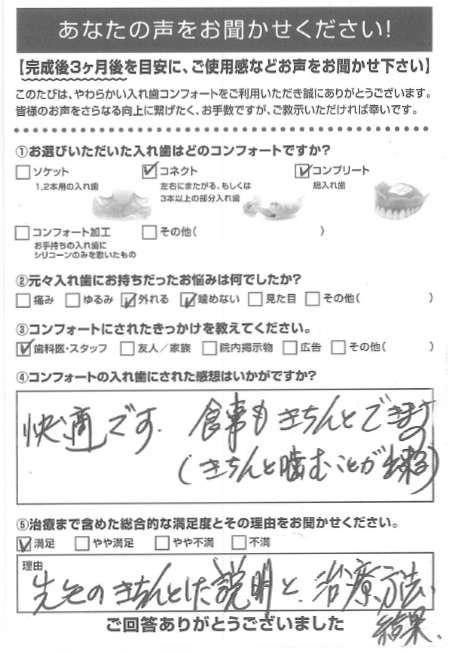 あなたの声をお聞かせください!
【完成後3ヶ月後を目安に、ご使用感などお声をお聞かせ下さい】
このたびは、やわらかい入れ歯コンフォートをご利用いただき誠にありがとうございます。
皆様のお声をさらなる向上に繋げたく、お手数ですが、ご教示いただければ幸いです。
①お選びいただいた入れ歯はどのコンフォートですか?
□ソケット ☑コネクト ☑コンプリート
1,2本用の入れ歯 左右にまたがる、もしくは 総入れ歯
3本以上の部分入れ歯
□コンフォート加工 □その他( )
お手持ちの入れ歯に
シリコーンのみを敷いたもの
②元々入れ歯にお持ちだったお悩みは何でしたか?
□痛み □ゆるみ ☑外れる ☑噛めない □見た目 □その他( )
③コンフォートにされたきっかけを教えてください。
☑歯科医・スタッフ □友人/家族 □院内掲示物 □広告 □その他( )
④コンフォートの入れ歯にされた感想はいかがですか?
快適です. 食事もきちんとできます
(きちんと噛むことが出来る)
⑤治療まで含めた総合的な満足度とその理由をお聞かせください。
☑満足 □やや満足 □やや不満 □不満
理由
先生のきちんとした説明と、治療方法、
結果.
ご回答ありがとうございました